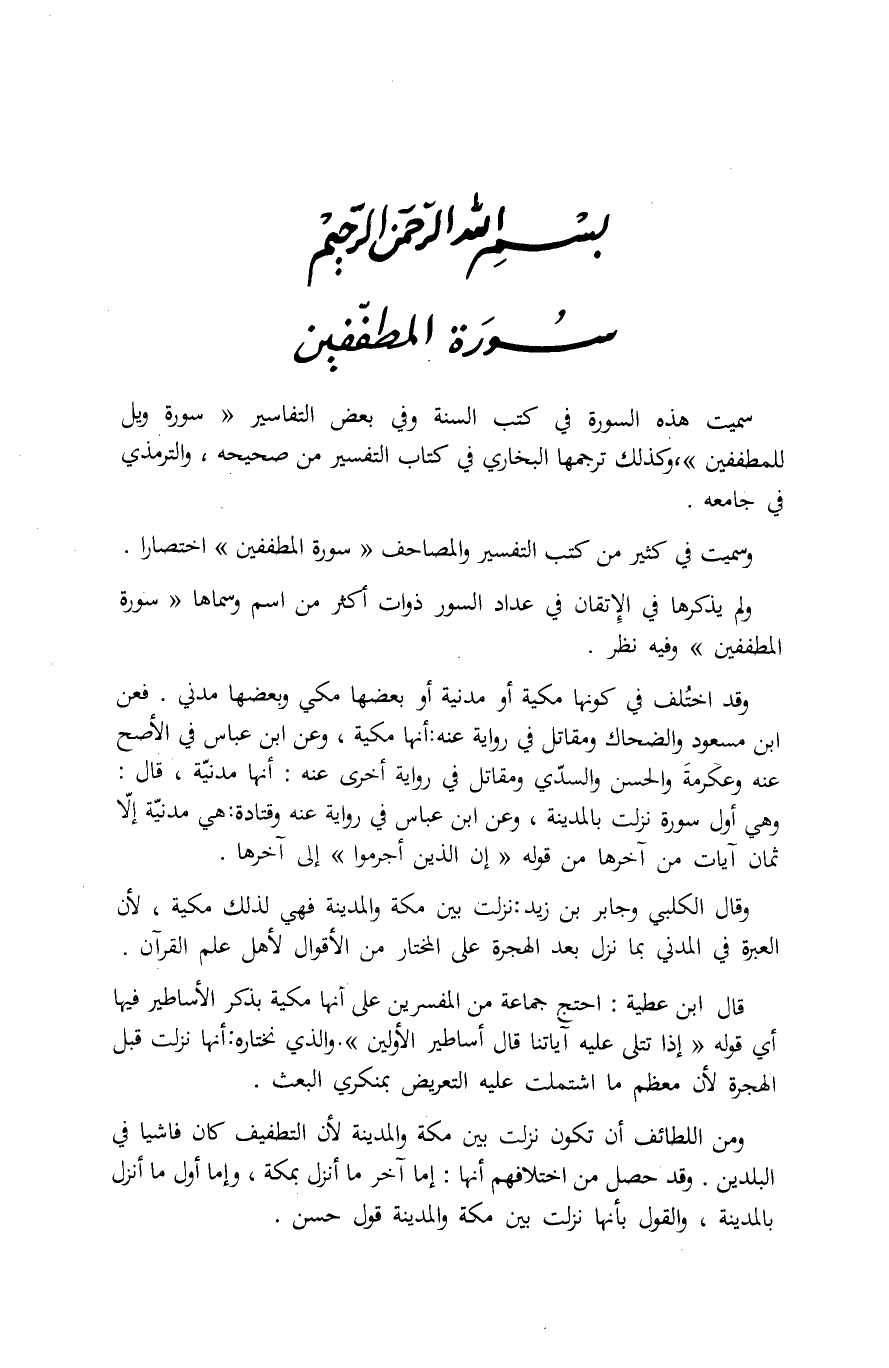 بِسْمِ اللّٰه الرَّحمَن الرَّحِيمْ
سُورَة المطفّفين
سميت هذه السورة في كتب السنة وفي بعض التفاسير « سورة ويل
للمطففين »،وكذلك ترجمها البخاري في كتاب التفسير من صحيحه ، والترمذي
في جامعه .
وسميت في كثير من كتب التفسير والمصاحف « سورة المطففين » اختصارا .
ولم يذكرها في الإتقان في عداد السور ذوات أكثر من اسم وسماها « سورة
المطففين » وفيه نظر .
وقد اختُلف في كونها مكية أو مدنية أو بعضها مكي وبعضها مدني . فعن
ابن مسعود والضحاك ومقاتل في رواية عنه:أنها مكية ، وعن ابن عباس في الأصح
عنه وعكرمةَ والحسن والسدّي ومقاتل في رواية أخرى عنه : أنها مدنيّة ، قال :
وهي أول سورة نزلت بالمدينة ، وعن ابن عباس في رواية عنه وقتادة:هي مدنيّة إلّا
ثمان آيات من آخرها من قوله « إن الذين أجرموا » إلى آخرها .
وقال الكلبي وجابر بن زيد:نزلت بين مكة والمدينة فهي لذلك مكية ، لأن
العبرة في المدني بما نزل بعد الهجرة على المختار من الأقوال لأهل علم القرآن .
قال ابن عطية : احتج جماعة من المفسرين على أنها مكية بذكر الأساطير فيها
أي قوله « إذا تتلى عليه آياتنا قال أساطير الأولين ».والذي نختاره:أنها نزلت قبل
الهجرة لأن معظم ما اشتملت عليه التعريض بمنكري البعث .
ومن اللطائف أن تكون نزلت بين مكة والمدينة لأن التطفيف كان فاشيا في
البلدين . وقد حصل من اختلافهم أنها : إما آخر ما أنزل بمكة ، وإما أول ما أنزل
بالمدينة ، والقول بأنها نزلت بين مكة والمدينة قول حسن .